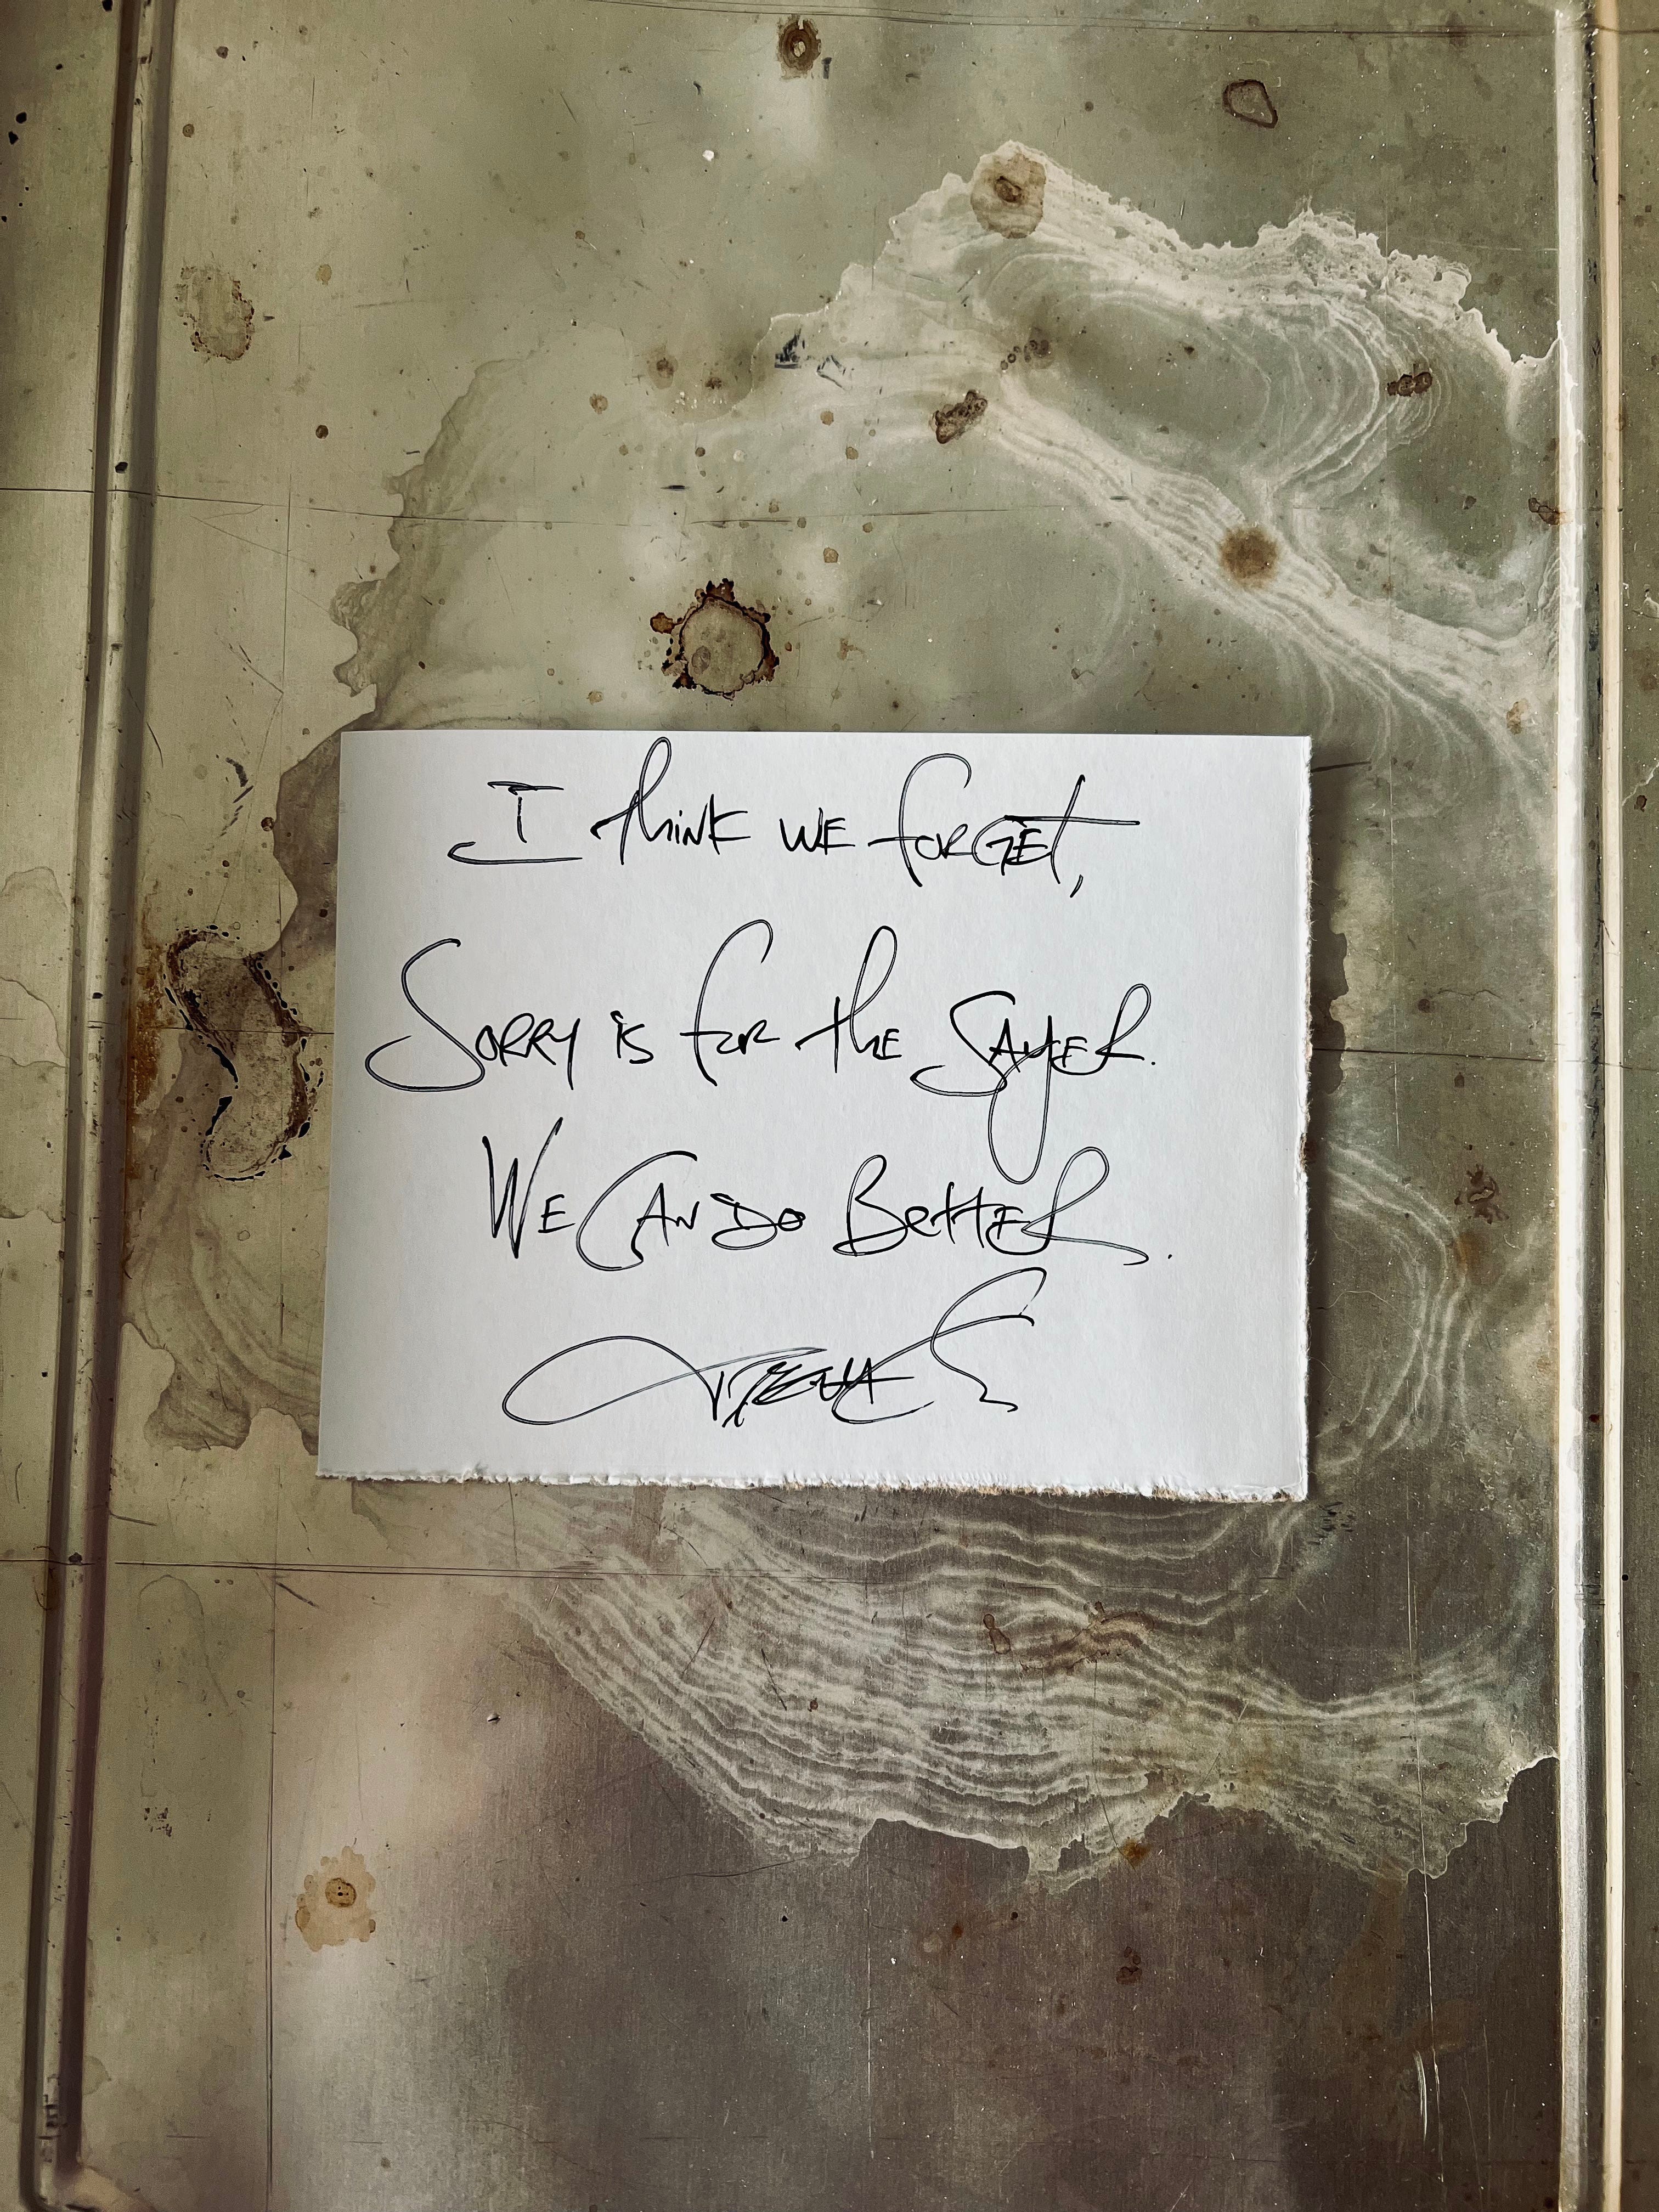 I think we forget,
Sorry is for the sayer.
We can do better.